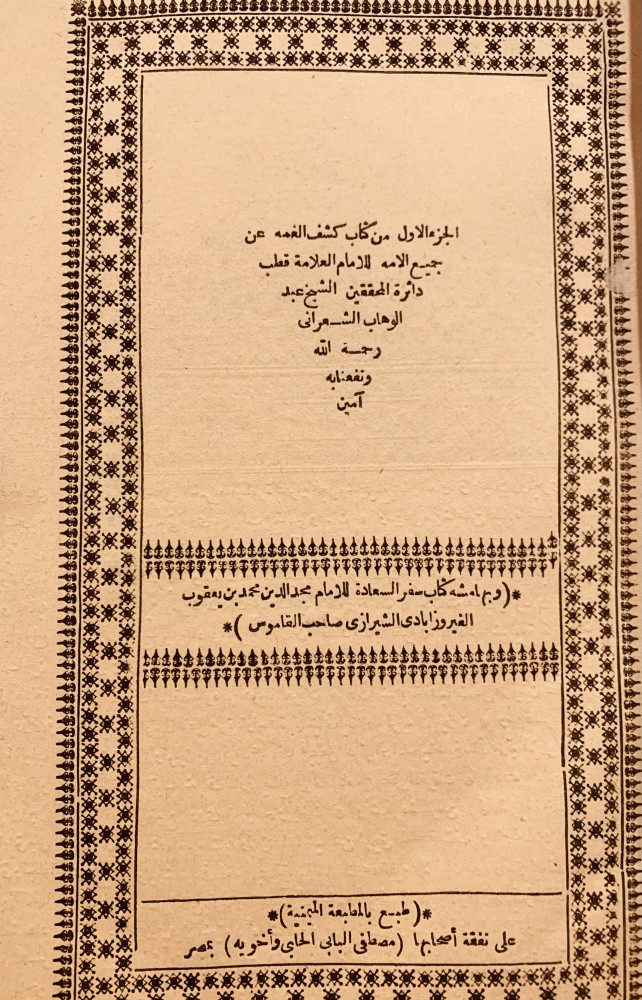 الجزء الاول من كتاب كشف الغمه عن
جميع الامه للامام العلامة قطب
دائرة المحققين الشيخ عبد
الوهاب الشعرانى
رحمة الله
ونفعنا به
آمين
*(وبهامشه كتاب سفر السعادة للامام مجد الدين محمد بن يعقوب
الفيروزابادى الشيرازى صاحب القاموس)*
*(طبع بالمطبعة الميمنية)*
على نفقة أصحابها (مصطفى البابى الحلبى وأخويه) بمصر